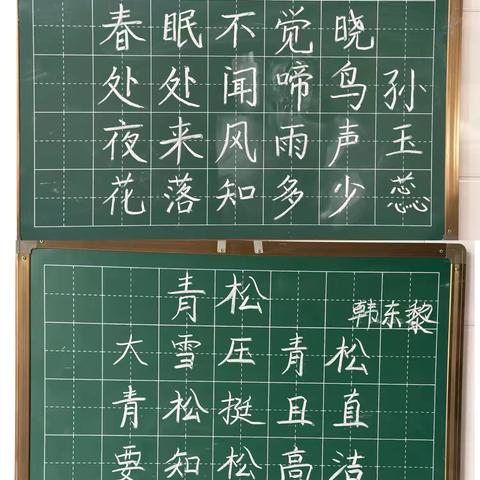 春眠不觉晓
处处闻啼鸟
夜来风雨声
花落知多少
孙玉蕊
青松
韩东黎
大雪压青松
青松挺且直
要知松高洁